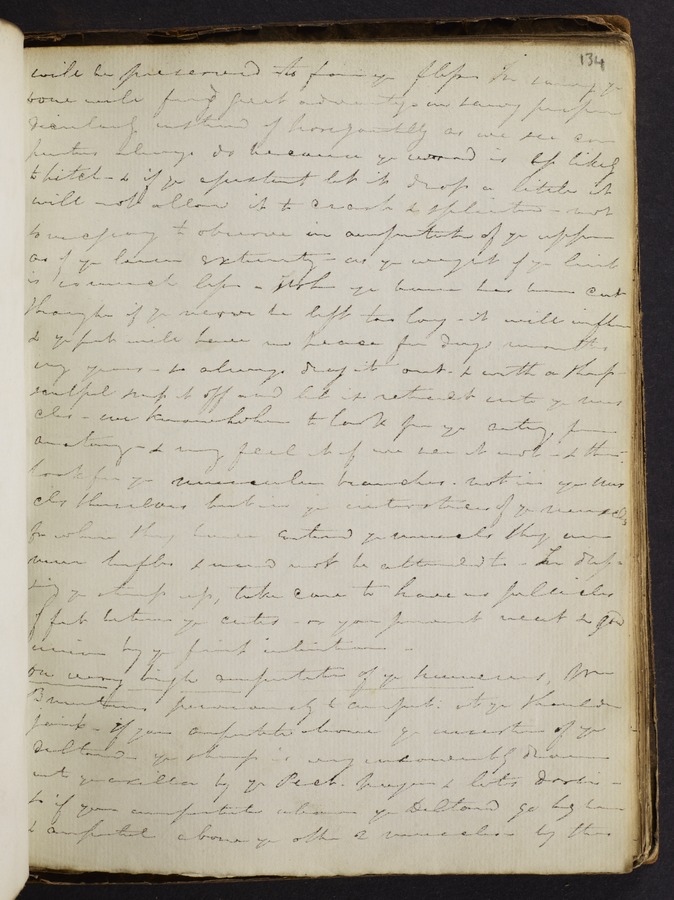 134
will be preserved to form ye flaps In sawing ye
bone will find great advantage in sawing perpen
dicularly instead of horizontally as we see car
penters always do because ye wound is less likely
to hitch - & if ye assistant let it drop a little it
will not allow it to crack & splinter - not
so necessary to observe in amputation of ye upper
as of ye lower extremity - as ye weight of ye limb
is much less - When ye bone has been cut
through if ye nerve be left too long - it will inflame
& ye pat will have no peace for days months
nay years - so always drag it out & with a sharp
scalpel snip it off and let it retract into ye mus
cles - we know where to look for ye artery, from
anatomy - & may feel it if we see it not - & then
look for ye muscular branches - not in ye mus
cles themselves but in ye interstices of ye muscles
for when they have entered ye muscles they are
mere trifles & need not be attended to - In dres-
sing ye stump up, take care to have no pellicles
of fat between ye cutis - or you prevent neat & good
union by ye first intention -
On very high amputation of ye humerus,
previously to amput: at ye shoulder
joint - if you amputate above ye insertion of ye
deltoid ye stump is very drawn
into ye axilla by ye Pect. major & lats dorsi -
so if you amputate above ye Deltoid go higher
& amputate above ye other 2 muscles by this